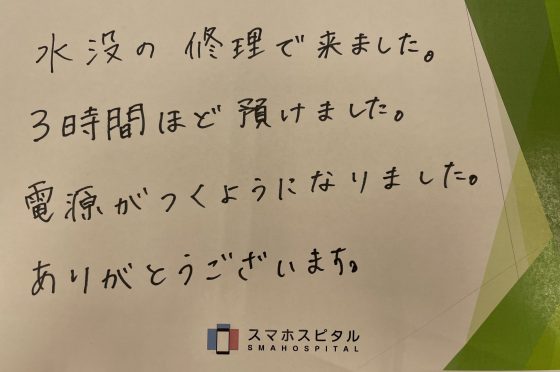 水没の修理で来ました。
3時間ほど預けました。
電源がつくようになりました。
ありがとうございます。
スマホスピタル
SMAHOSPITAL